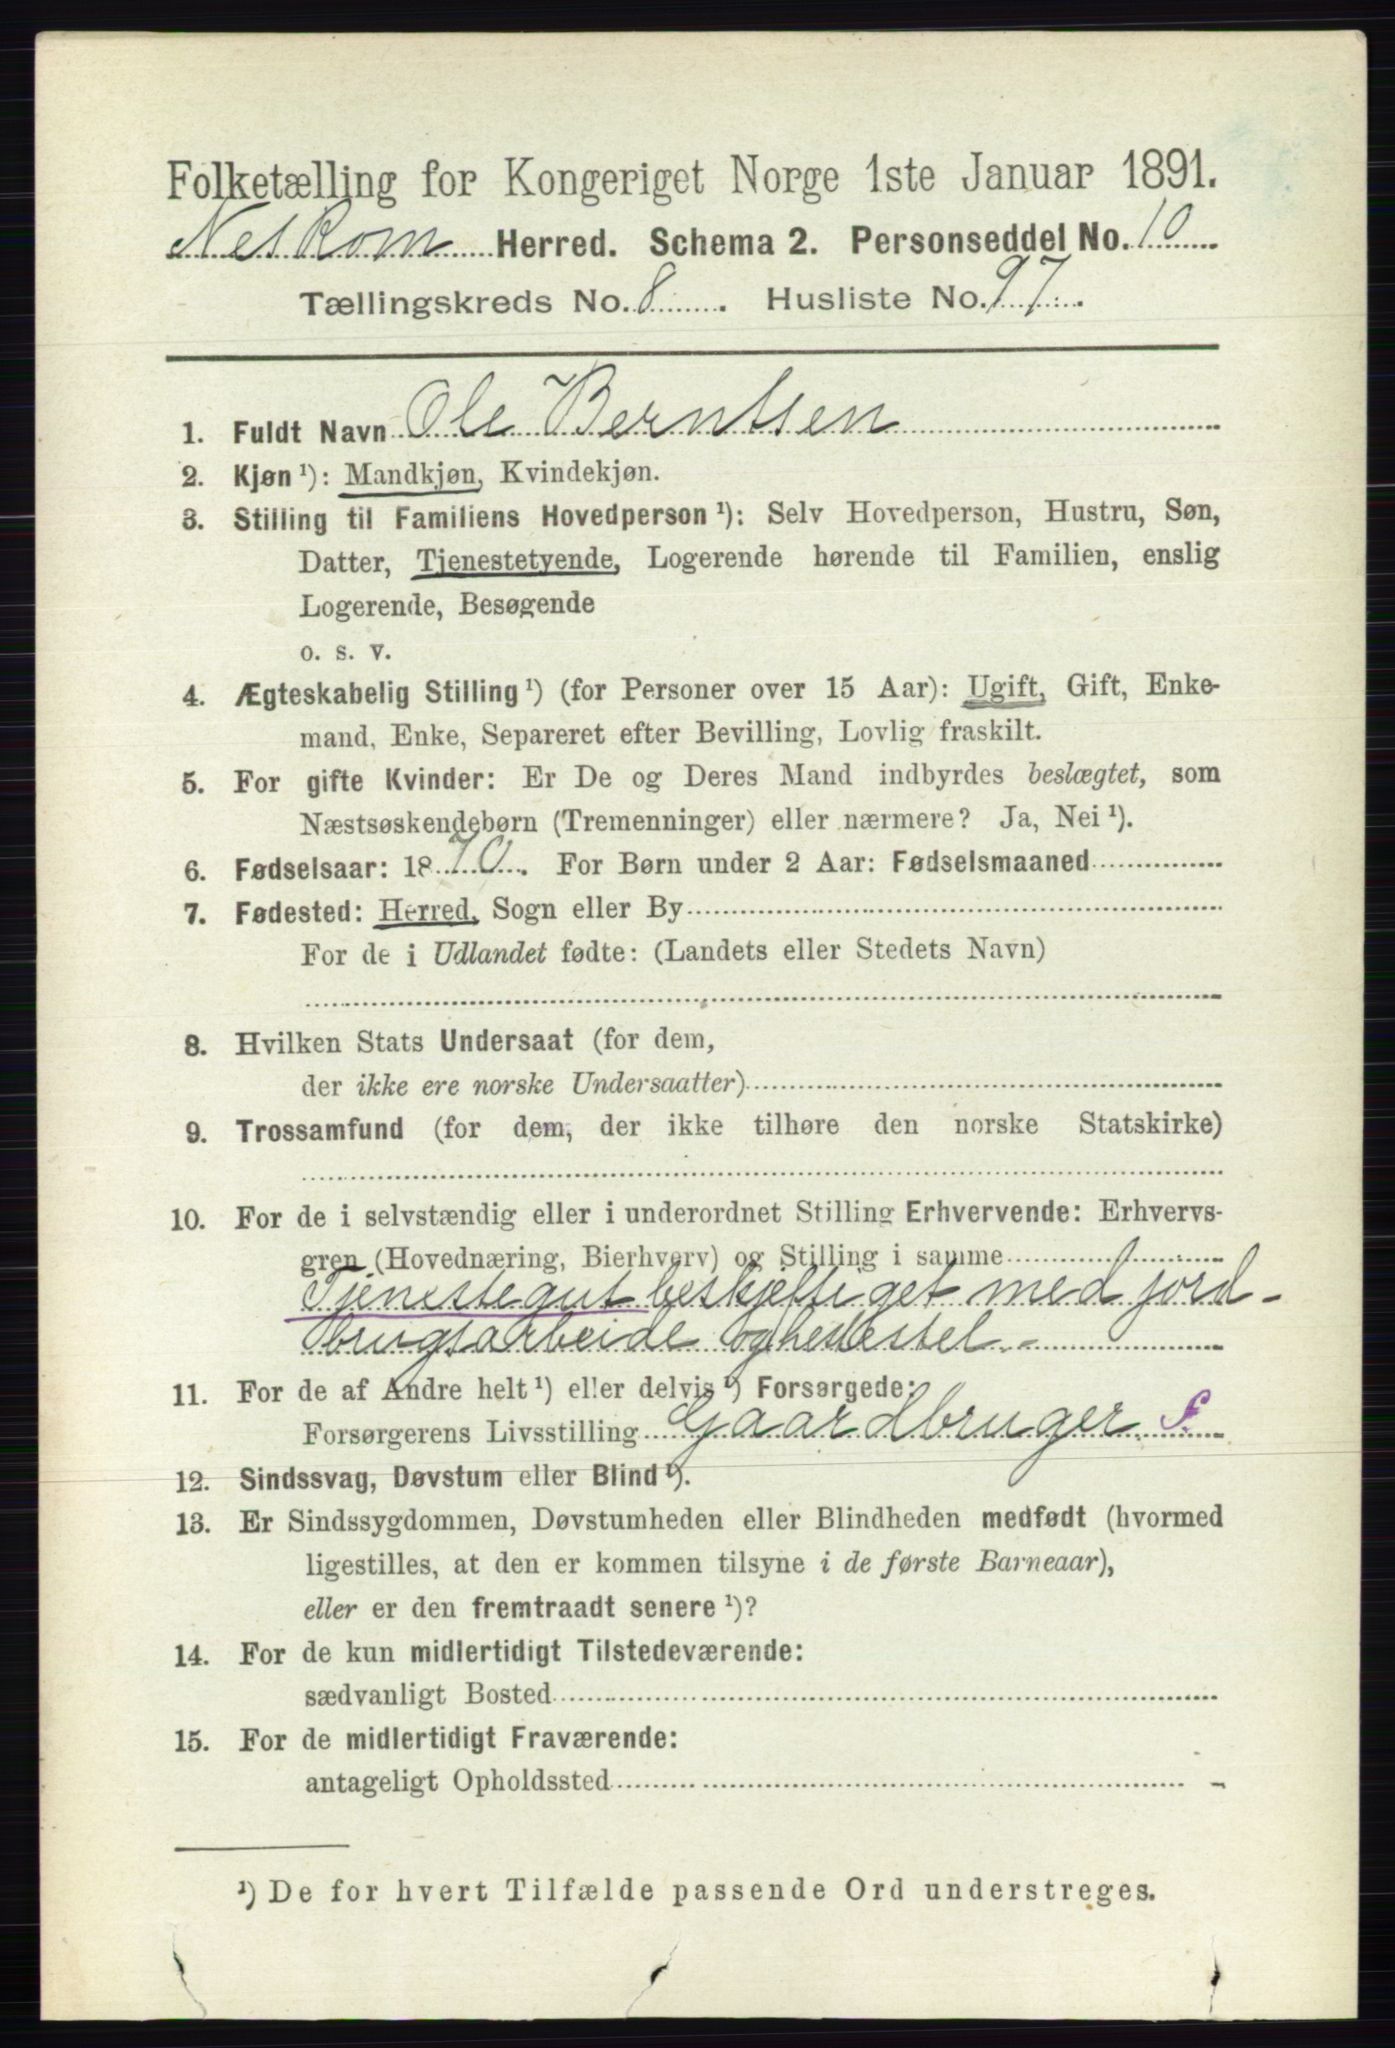 Folketælling for Kongeriget Norge 1ste Januar 1891.
Nes Rom Herred. Schema 2. Personseddel No. 10
Tællingskreds No. 8. Husliste No. 97.
1. Fuldt Navn Ole Berntsen
2. Kjøn ¹): Mandkjøn, Kvindekjøn.
3. Stilling til Familiens Hovedperson ¹): Selv Hovedperson, Hustru, Søn,
Datter, Tjenestetyende, Logerende hørende til Familien, enslig
Logerende, Besøgende
o. s. v.
4. Ægteskabelig Stilling ¹) (for Personer over 15 Aar): Ugift, Gift, Enke-
mand, Enke, Separeret efter Bevilling, Lovlig fraskilt.
5. For gifte Kvinder: Er De og Deres Mand indbyrdes beslægtet, som
Næstsøskendebørn (Tremenninger) eller nærmere? Ja, Nei ¹).
6. Fødselsaar: 1870. For Børn under 2 Aar: Fødselsmaaned
7. Fødested: Herred, Sogn eller By
For de i Udlandet fødte: (Landets eller Stedets Navn)
8. Hvilken Stats Undersaat (for dem,
der ikke ere norske Undersaatter)
9. Trossamfund (for dem, der ikke tilhøre den norske Statskirke)
10. For de i selvstændig eller i underordnet Stilling Erhvervende: Erhvervs-
gren (Hovednæring, Bierhverv) og Stilling i samme
Tjenestegut beskjeftiget med jord-
brugsarbeide og hestestel.-
11. For de af Andre helt ¹) eller delvis ¹) Forsørgede:
Forsørgerens Livsstilling Gaardbruger. f.
12. Sindssvag, Døvstum eller Blind ¹).
13. Er Sindssygdommen, Døvstumheden eller Blindheden medfødt (hvormed
ligestilles, at den er kommen tilsyne i de første Barneaar),
eller er den fremtraadt senere ¹)?
14. For de kun midlertidigt Tilstedeværende:
sædvanligt Bosted
15. For de midlertidigt Fraværende:
antageligt Opholdssted
¹) De for hvert Tilfælde passende Ord understreges.